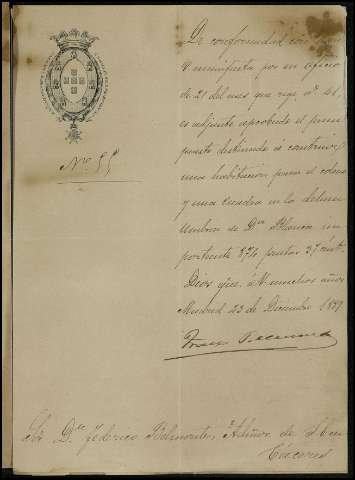 De conformidad con
V manifiesta por su oficio
de 21 del mes que rige nº 41,
es adjunto aprobado el presu
puesto destinado á construir
una habitación para el colono
y una cuadra en la
de Dª Blanca im
portante 874 pesetas 37 cént.
Dios gue. á V. muchos años
Madrid 23 de Diciembre 1899
Nº 55
Sor Dn. Federico Belmonte, Admor. de
Cáceres